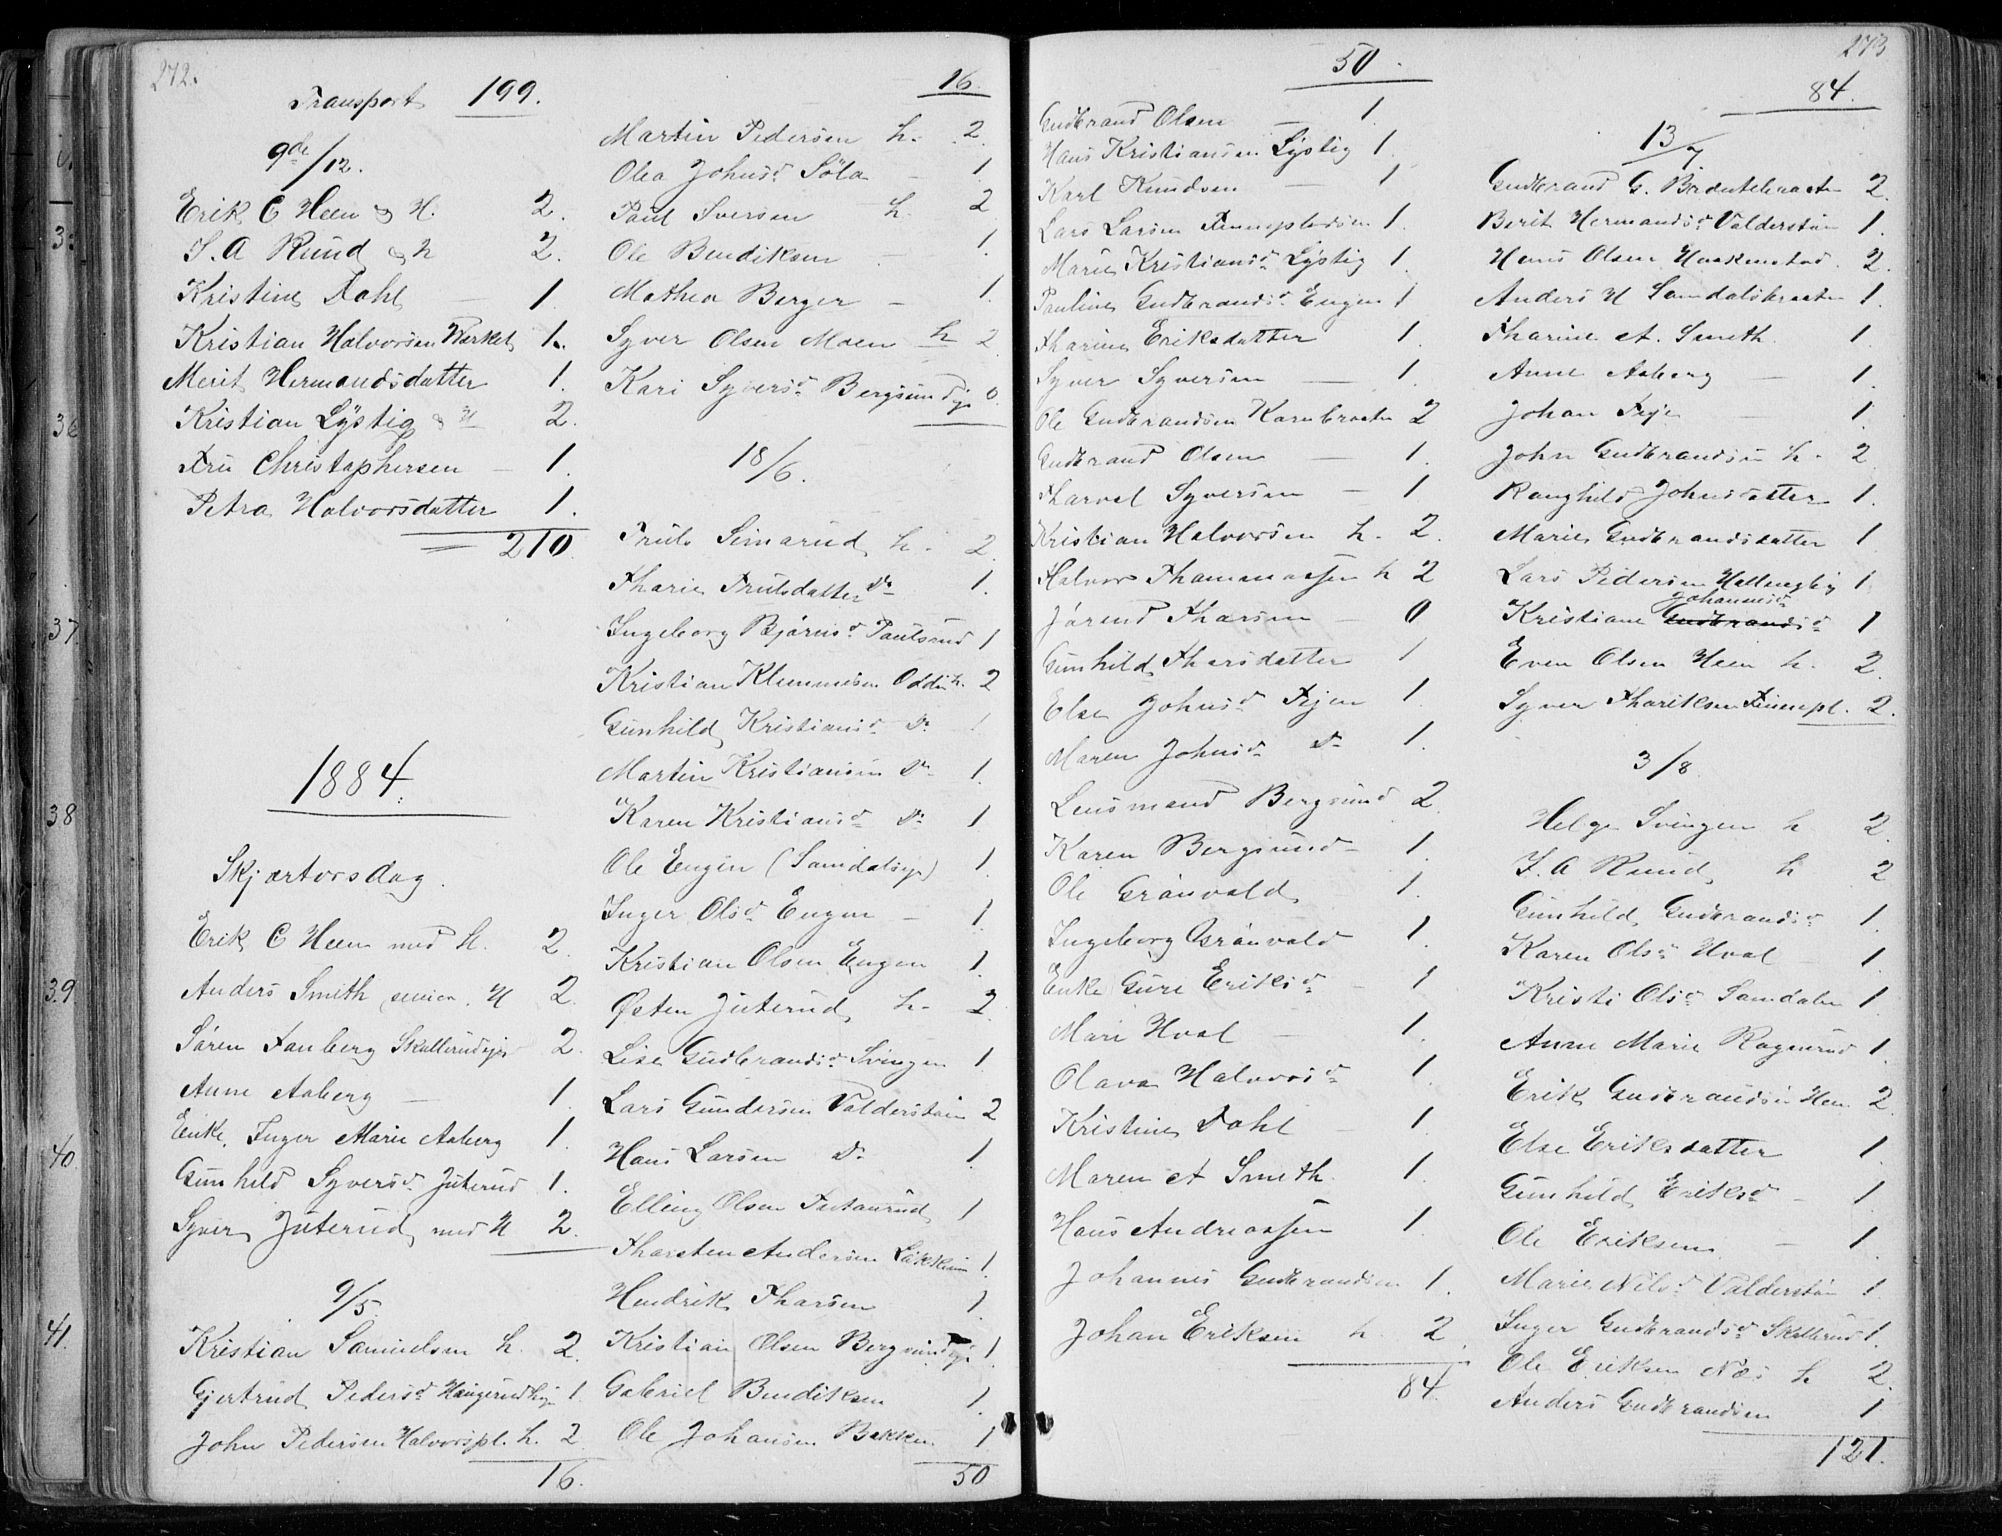 272.
Transport 199.
9de/12.
Erik C Heen & H. 2.
S. A Ruud & h 2.
Kristine Dahl — 1.
Kristian Halvorsen Værket 1.
Merit Hermandsdatter 1.
Kristian Lystig & H 2.
Fru Christophersen — 1.
Petra Halvorsdatter 1.
210.
1884.
Skjærtorsdag.
Erik C Heen med H. 2.
Anders Smith senior. H 2.
Søren Fanberg Skallerudeje 2.
Anne Aaberg — 1.
Enke. Inger Marie Aaberg 1.
Gunhild Syversd. Juterud 1.
Syver Juterud med H 2.
9/5.
Kristian Samuelsen h. 2.
Gjertrud Pedersd. Haugerudeje 1.
John Pedersen Halvorspl. h. 2
16.
16.
Martin Pedersen h. 2.
Olea Johnsd. Söla — 1.
Paul Iversen h. 2
Ole Bendiksen — 1.
Mathea Berger — 1.
Syver Olsen Moen h 2
Kari Syversd. Bergsundeje 0.
18/6.
Truls Simarud h. 2.
Thorie Trulsdatter Do 1.
Ingeborg Bjørnsd. Paulsrud 1
Kristian Klemmesen Oddn h. 2
Gunhild Kristiansd. Do 1
Martin Kristiansen Do 1.
Karen Kristiansd. Do 1
Ole Engen (Samdalseje) 1.
Inger Olsd. Engen — 1.
Kristian Olsen Engen 1.
Østen Juterud h. 2.
Lise Gudbrandsd. Svingen 1
Lars Gundersen Valderstøen 2
Hans Larsen Do 1.
Elling Olsen Fastanrud 1
Thorsten Andersen Løkken 1.
Hendrik Thorsen 1.
Kristian Olsen Bergsundeje 1.
Gabriel Bendiksen 1.
Ole Johansen Bakken 1
50
50.
Gudbrand Olsen — 1.
Hans Kristiansen Lystig 1.
Karl Knudsen — 1
Lars Larsen Finnepladsen 1.
Marie Kristiansd. Lystig 1.
Pauline Gudbrandsd. Engen 1
Thorine Eriksdatter 1.
Syver Syversen — 1.
Ole Gudbrandsen Kornbraaten 2
Gudbrand Olsen — 1.
Thorval Syversen — 1.
Kristian Halvorsen h. 2.
Halvor Thommassen h 2
Jørend Thorsen — 0
Gunhild Thorsdatter 1
Else Johnsd. Fejen 1.
Maren Johnsd. Do 1.
Lensmand Bergsund 2.
Karen Bergsund 1.
Ole Grønvold 1.
Ingeborg Grønvold 1.
Enke Guri Eriksd. — 1
Mari Hval — 1.
Olava Halvorsd. 1.
Kristine Dahl — 1.
Maren A Smith 1.
Hans Andreassen 1.
Johannes Gudbrandsen 1.
Johan Eriksen h. 2.
84.
273
84.
13/7
Gudbrand G. Brænteberaaten 2.
Berit Hermandsd. Valderstøen 1.
Hans Olsen Haakenstad. 2.
Anders H Samdalsbraaten 1.
Thorine A. Smith 1
Anne Aaberg — 1.
Johan Feje — 1.
John Gudbrandsen h. 2.
Ranghild Johnsdatter 1.
Marie Gudbrandsdatter 1.
Lars Pedersen Hallingby 1
Johannesd.
Kristiane Gudbrandsd. 1
Even Olsen Heen h. 2.
Syver Thoriksen Finnepl. 2.
3/8.
Helge Svingen h 2
S. A Ruud h 2
Gunhild Gudbrandsd. 1.
Karen Olsd. Hval — 1.
Kristi Olsd. Samdalen 1
Anne Marie Rognerud 1.
Erik Gudbrandsen Heen 2.
Else Eriksdatter 1.
Gunhild Eriksd. — 1
Ole Eriksen — 1.
Marie Nilsd. Valderstøen 1.
Inger Gudbrandsd. Skallerud 1.
Ole Eriksen Næs h 2.
Anders Gudbrandsen 1
121.
35
36
37
38
39
40
41.